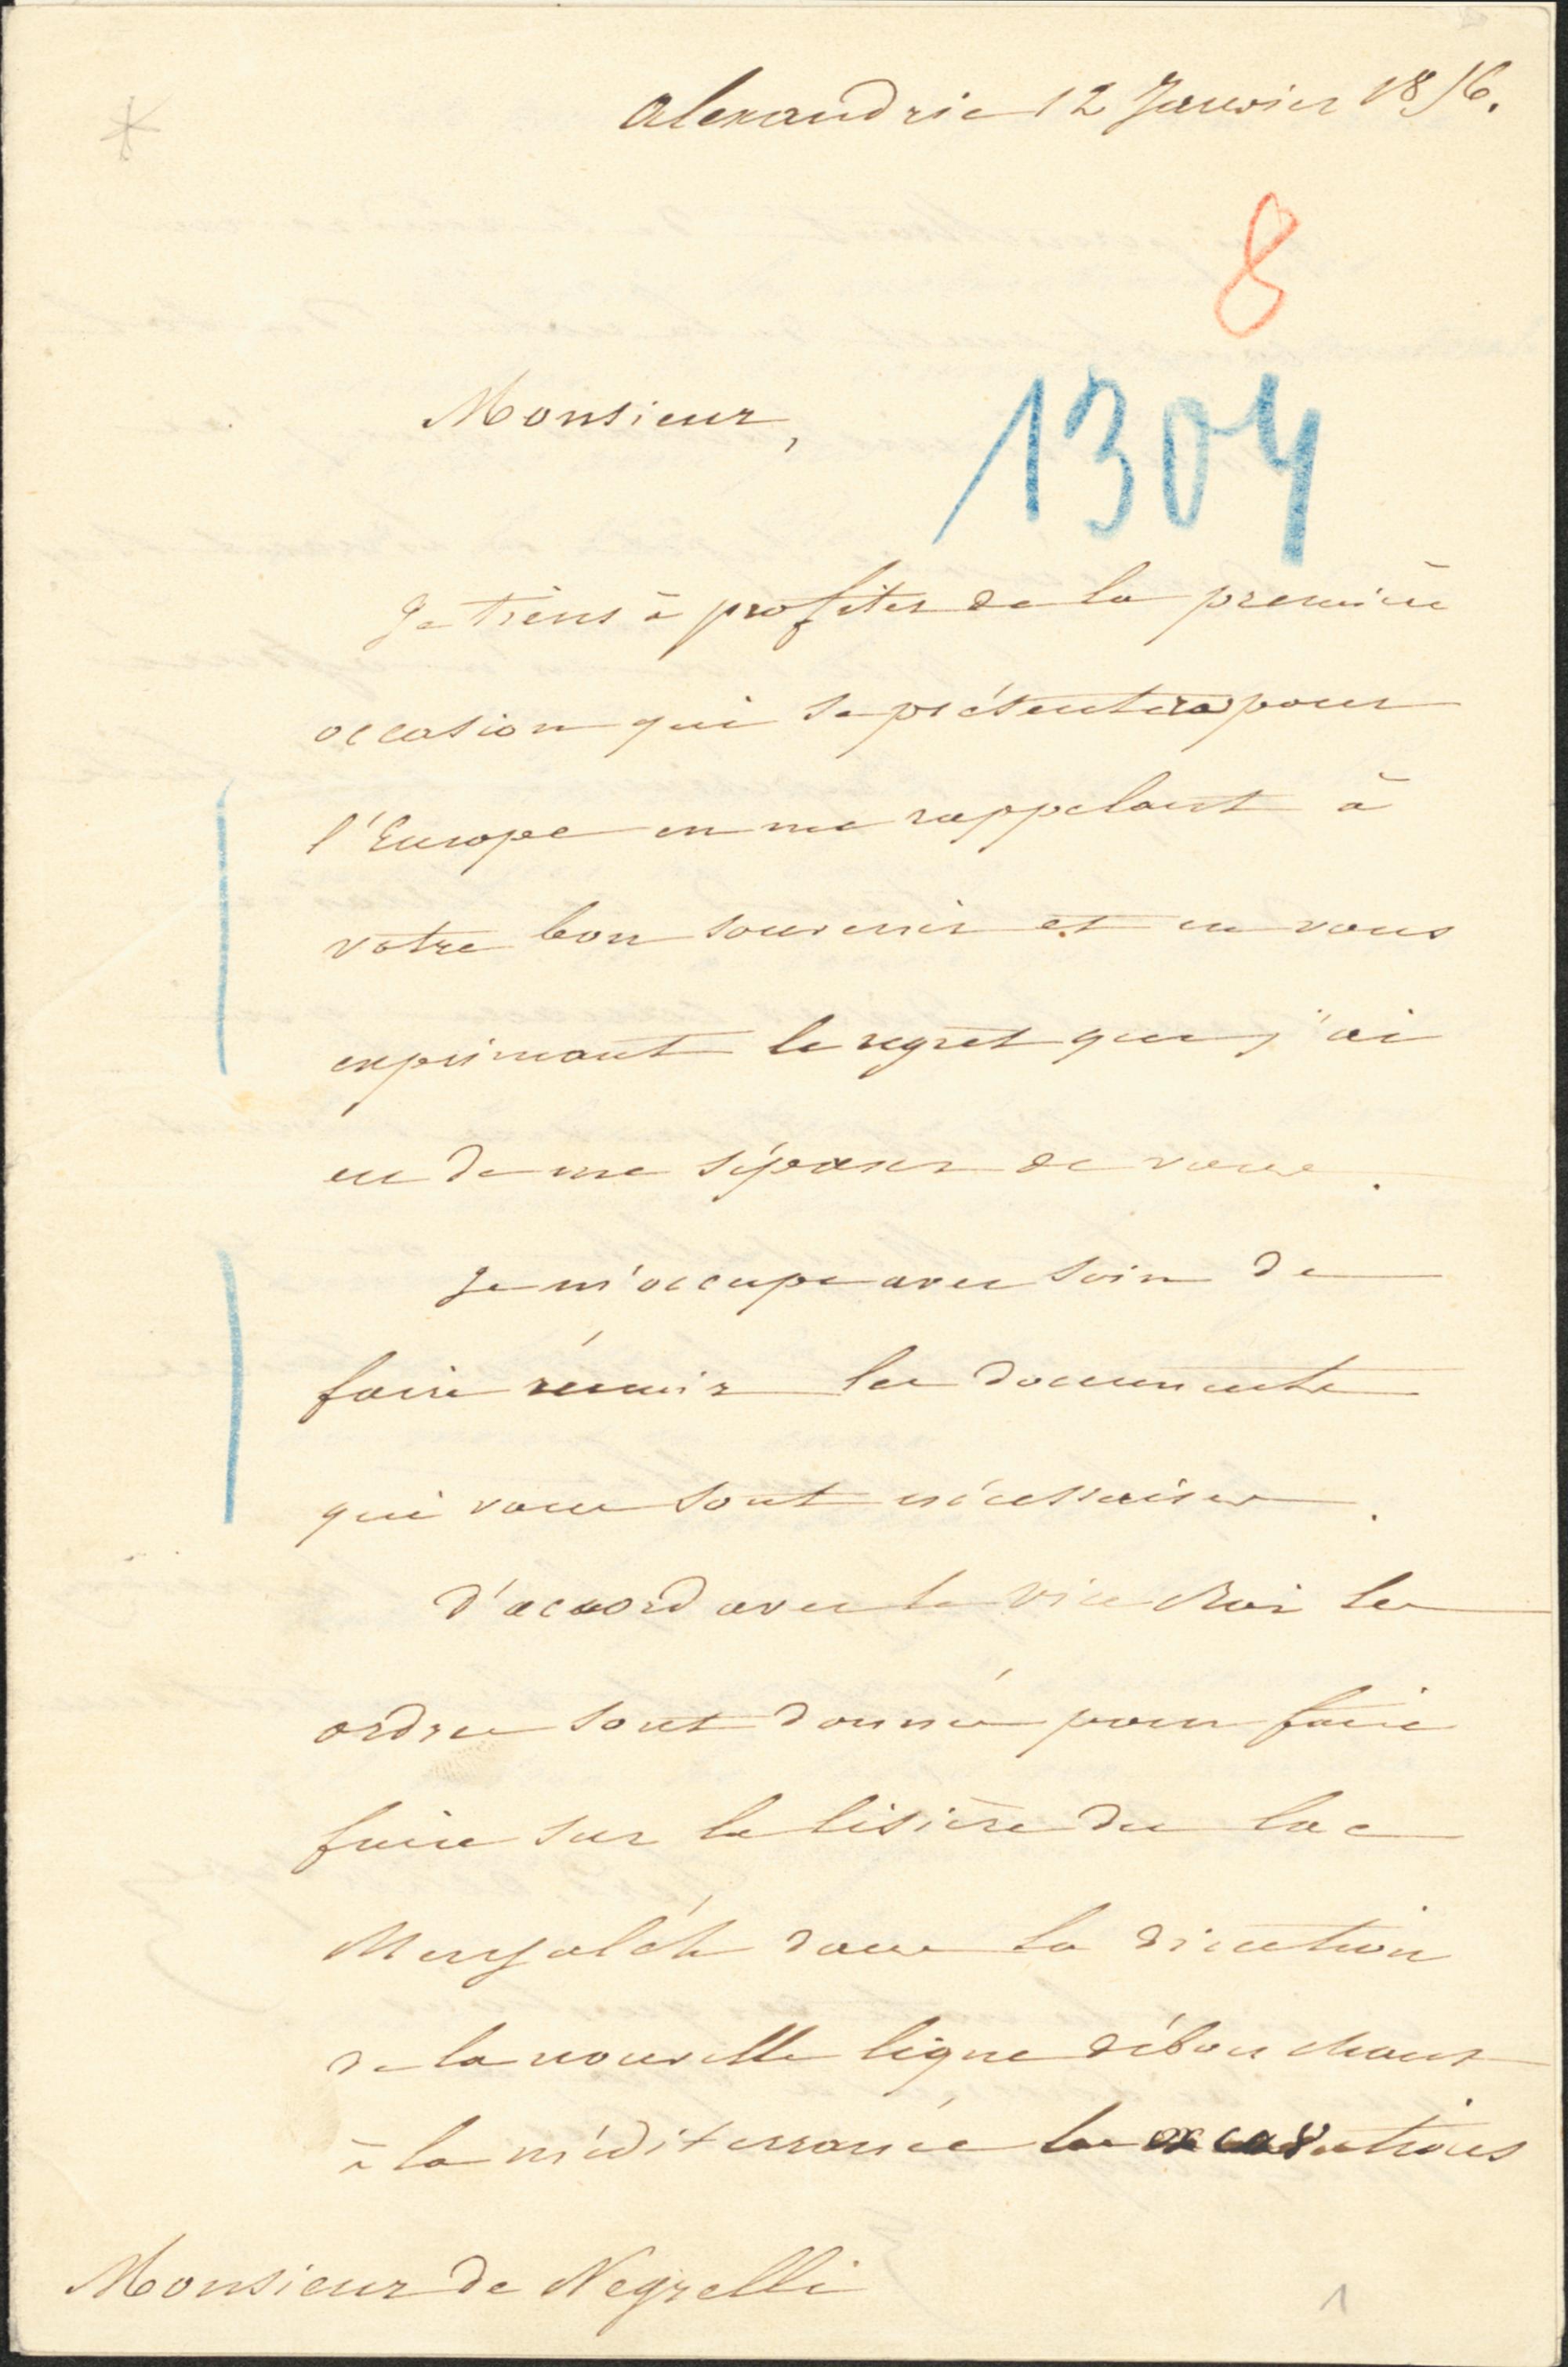 Alexandrie 12 Janvier 1856.
8
1304
Monsieur,
Je tiens à profiter de la première
occasion qui se présentera pour
l'Europe en me rappelant à
votre bon souvenir et en vous
exprimant le regret que j'ai
eu de me séparer de vous.
Je m'occupe avec soin de
faire réunir les documents
qui vous sont nécessaires.
D'accord avec le Vice Roi les
ordres sont donnés pour faire
faire sur la lisière du lac
Menzaleh dans la direction
de la nouvelle ligne débouchant
à la méditerranée les excavations
Monsieur de Negrelli
1